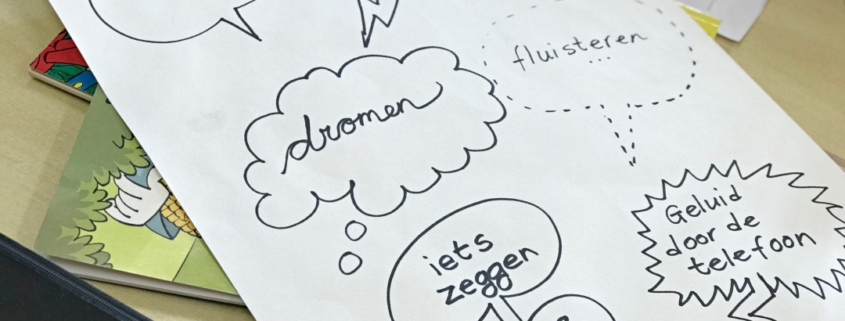 fluisteren
...
dromen
Geluid
door de
telefoon
iets
zeggen